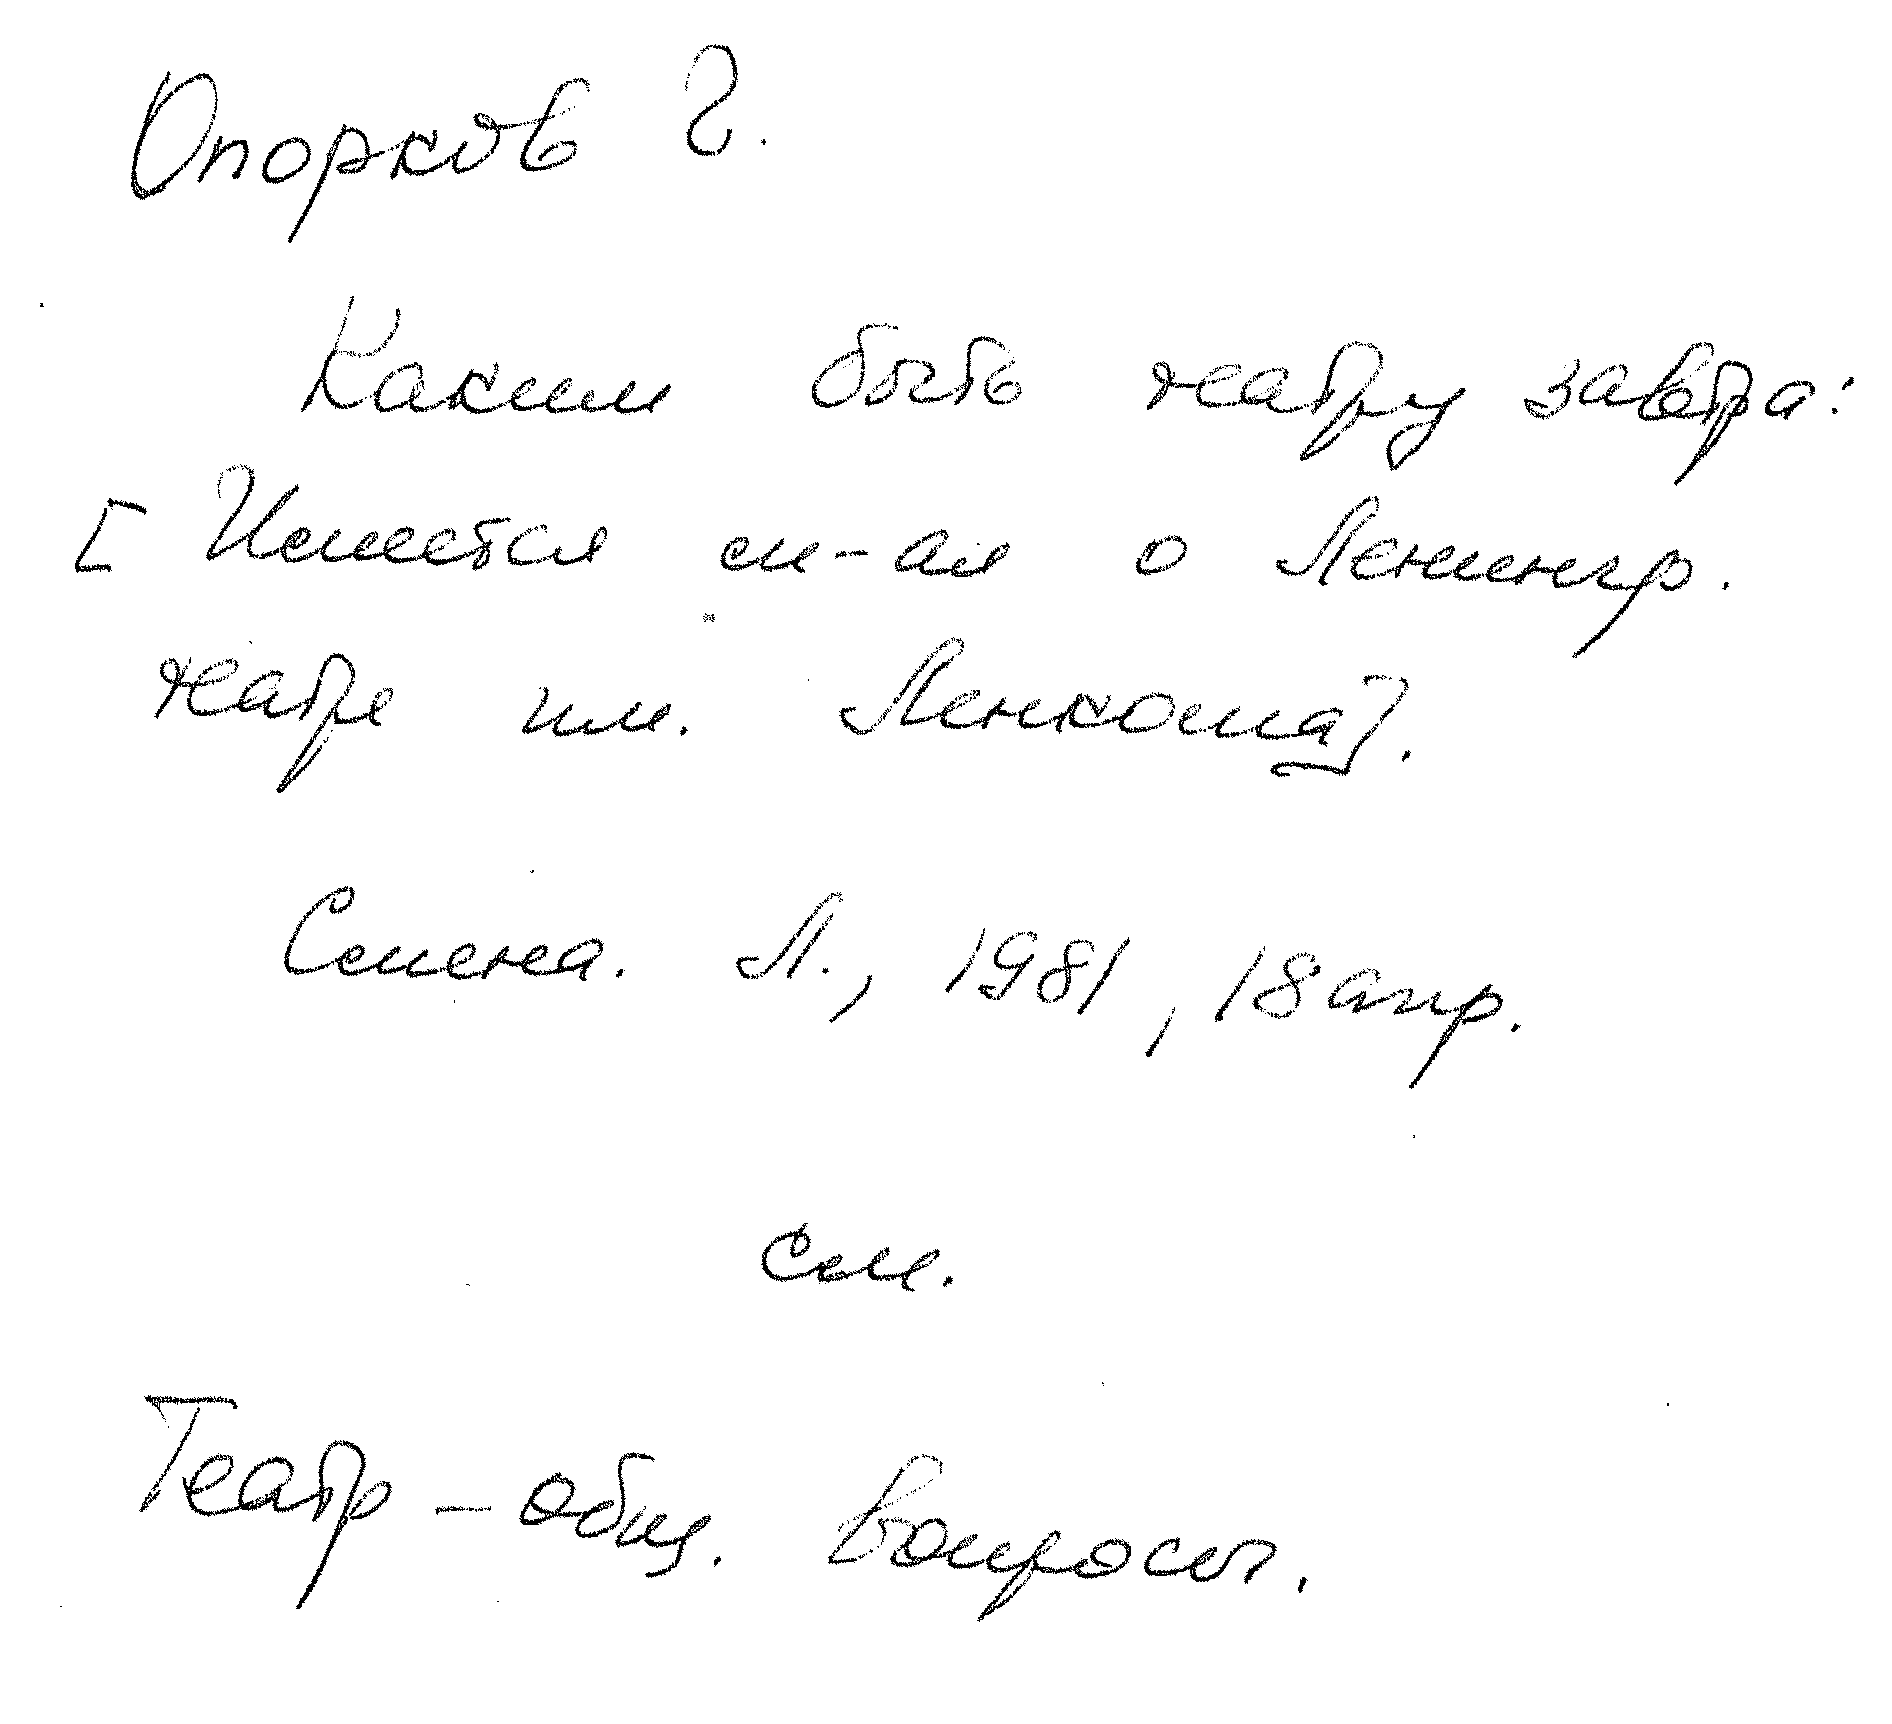 Опорков Г.
Каким быть театру завтра:
[Имеется м-ал о Ленингр.
театре им. Ленкома].
Смена. Л., 1981, 18 апр.
см.
Театр - общ. вопросы.